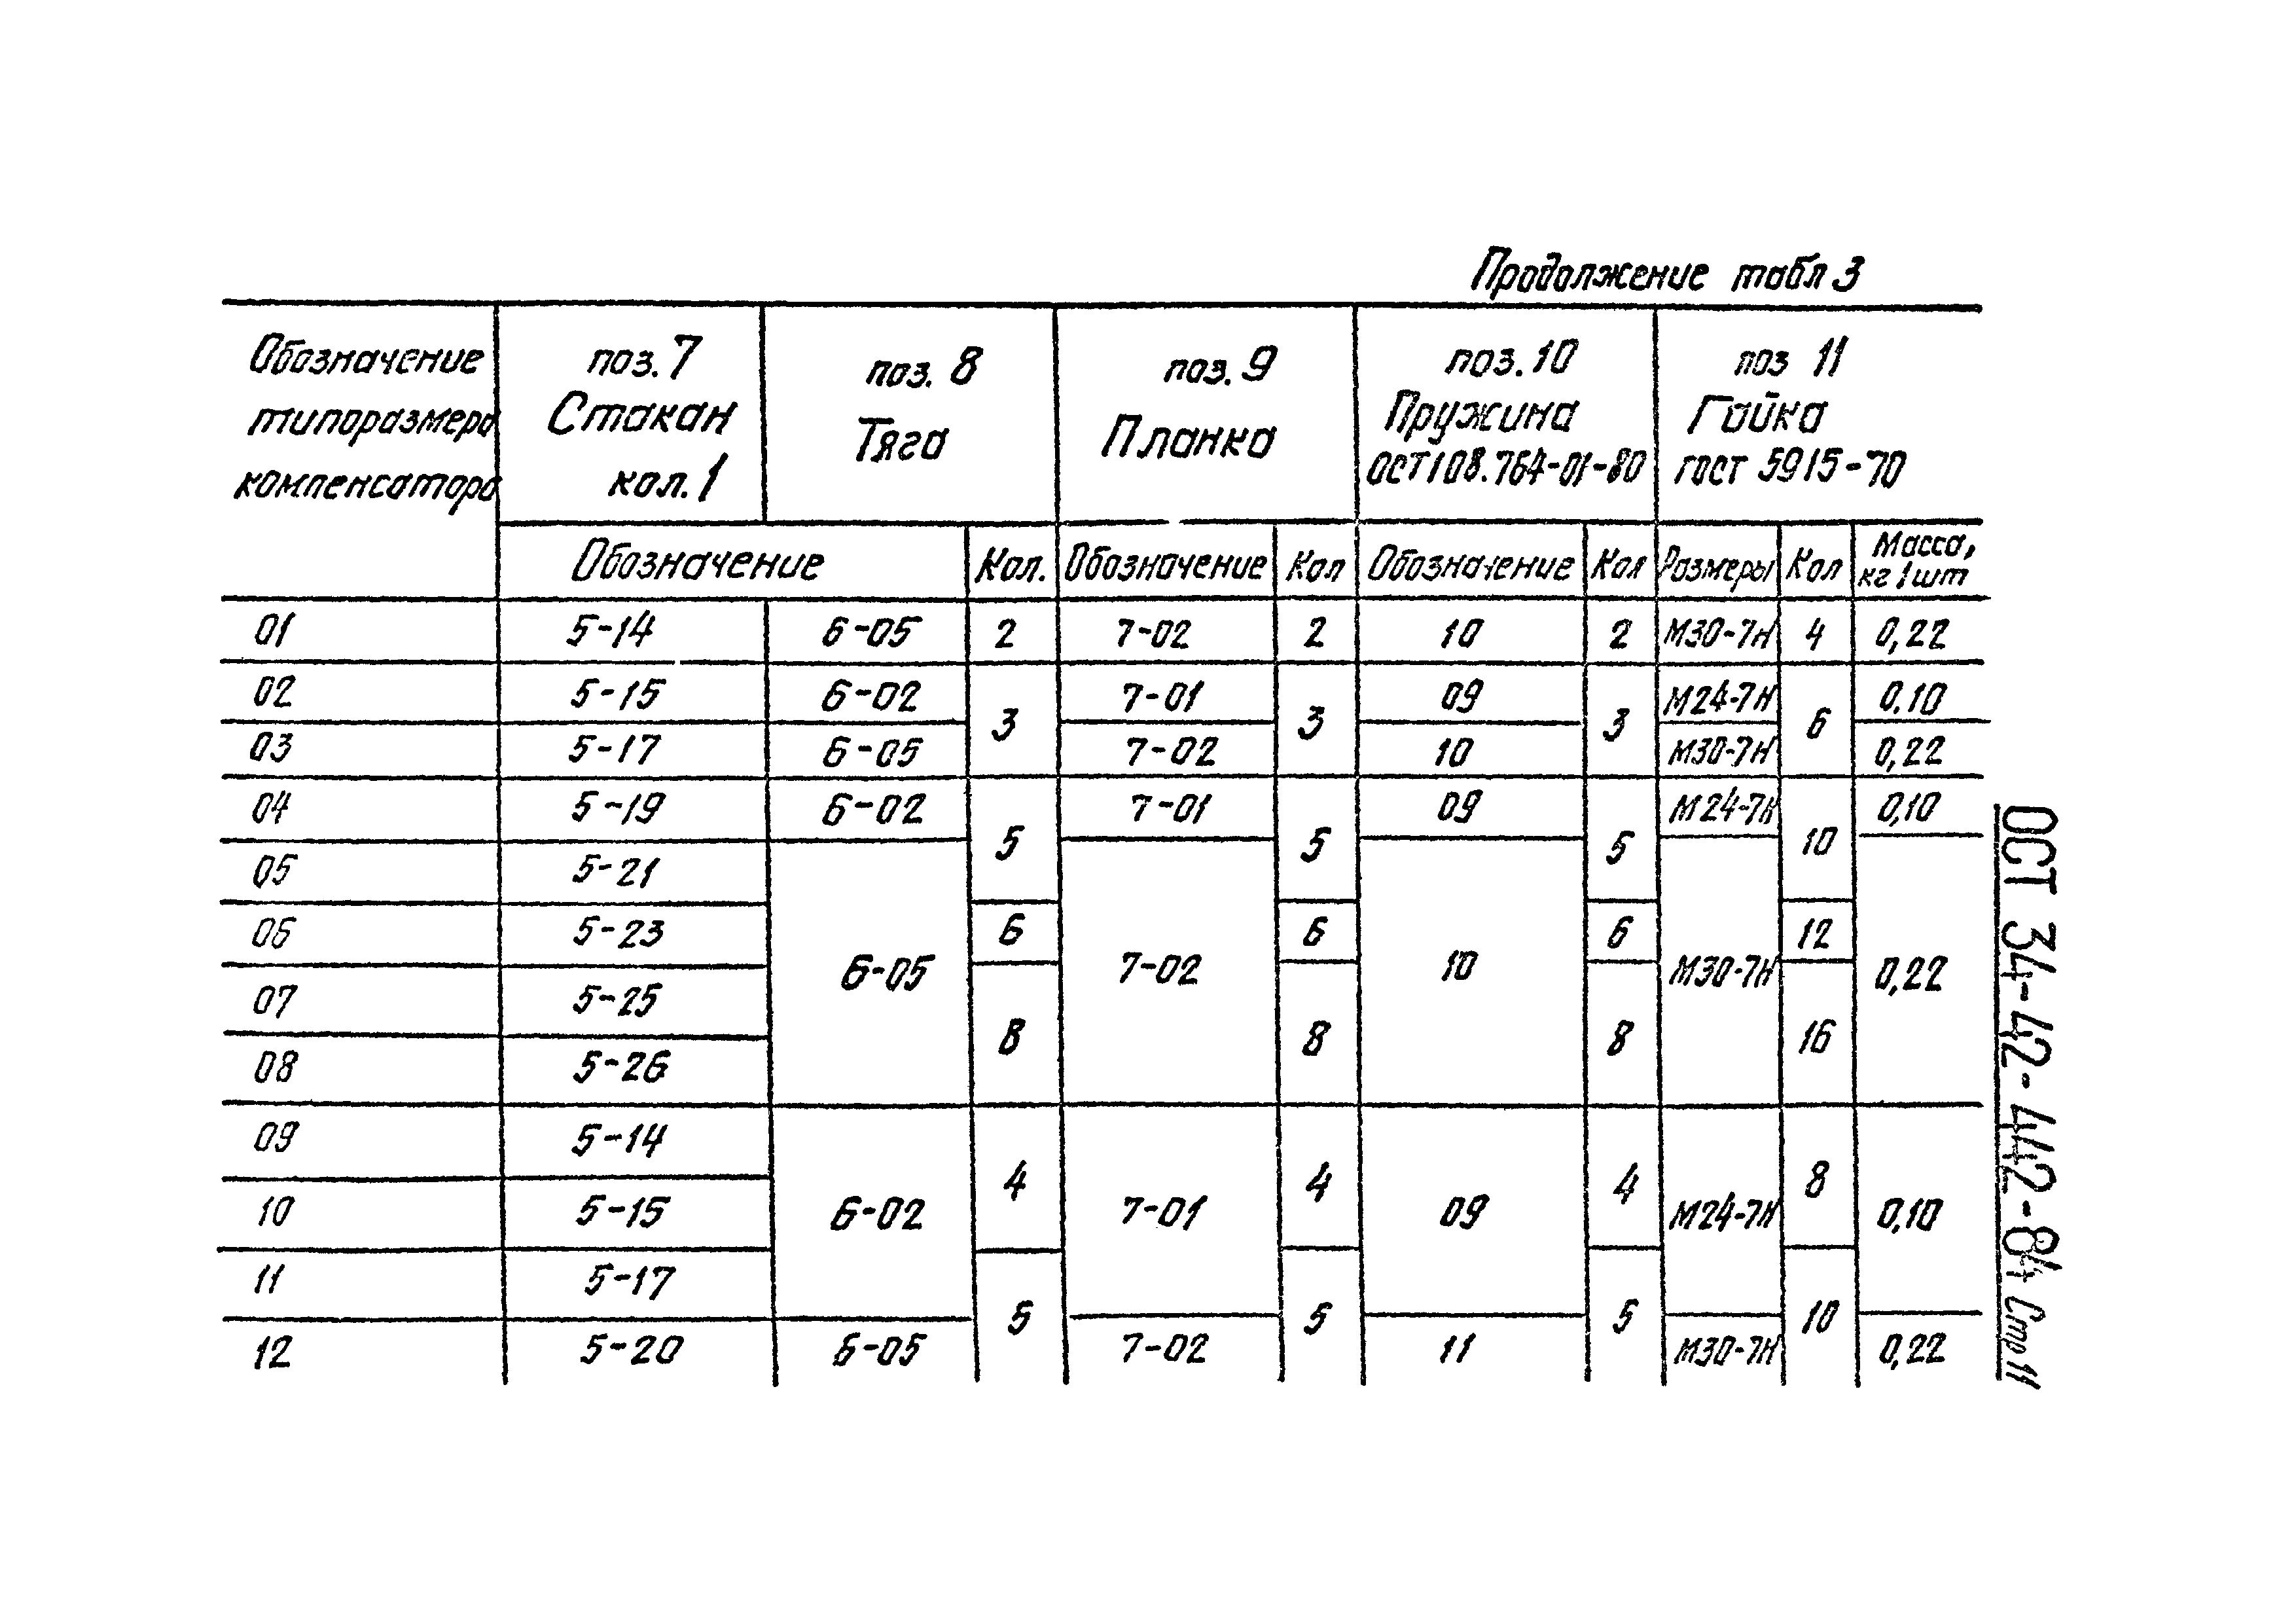 Продолжение табл 3
Обозначение типоразмера компенсатора | поз. 7 Стакан кол. 1 | поз. 8 Тяга | поз. 9 Планка | поз. 10 Пружина ОСТ 108.764-01-80 | поз 11 Гайка ГОСТ 5915-70
Обозначение | Кол. | Обозначение | Кол | Обозначение | Кол | Размеры | Кол | Масса, кг 1 шт
01 | 5-14 | 6-05 | 2 | 7-02 | 2 | 10 | 2 | М30-7Н | 4 | 0,22
02 | 5-15 | 6-02 | 3 | 7-01 | 3 | 09 | 3 | М24-7Н | 6 | 0.10
03 | 5-17 | 6-05 | 7-02 | 10 | М30-7Н | 0,22
04 | 5-19 | 6-02 | 5 | 7-01 | 5 | 09 | 5 | М24-7Н | 10 | 0,10
05 | 5-21 | 6-05 | 7-02 | 10 | М30-7Н | 0,22
06 | 5-23 | 6 | 6 | 6 | 12
07 | 5-25 | 8 | 8 | 8 | 16
08 | 5-26
09 | 5-14 | 6-02 | 4 | 7-01 | 4 | 09 | 4 | М24-7Н | 8 | 0,10
10 | 5-15
11 | 5-17 | 5 | 5 | 5 | 10
12 | 5-20 | 6-05 | 7-02 | 11 | М30-7Н | 0,22
ОСТ 34-42-442-84 Стр 11